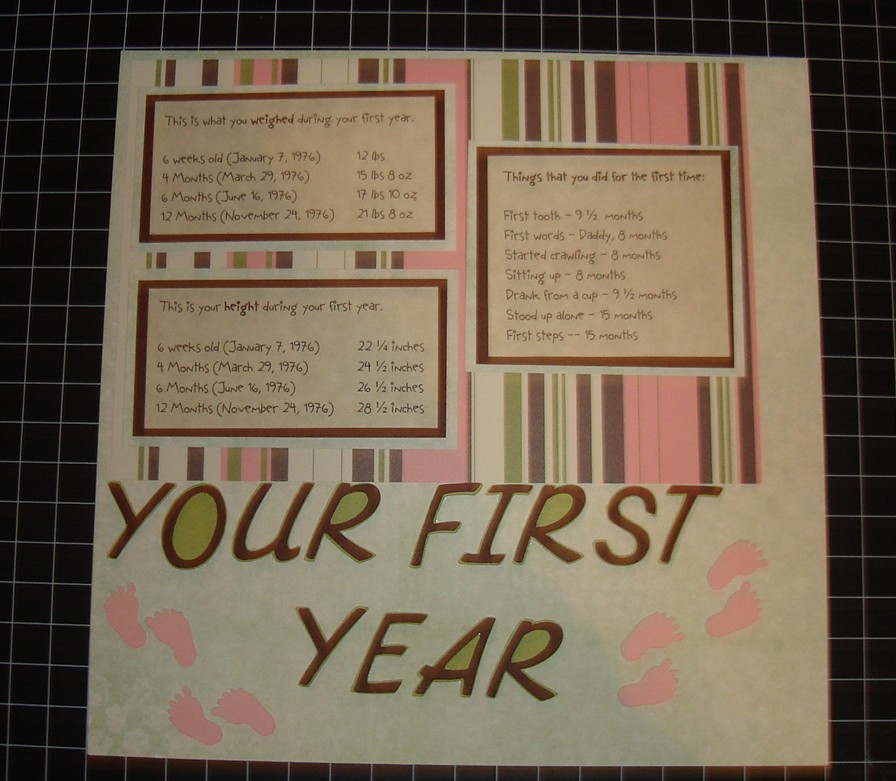 This is what you weighed during your first year.
6 weeks old (January 7, 1976) 12 lbs
4 Months (March 29, 1976) 15 lbs 8 oz
6 Months (June 16, 1976) 17 lbs 10 oz
12 Months (November 24, 1976) 21 lbs 8 oz
This is your height during your first year.
6 weeks old (January 7, 1976) 22 ¼ inches
4 Months (March 29, 1976) 24 ½ inches
6 Months (June 16, 1976) 26 ½ inches
12 Months (November 24, 1976) 28 ½ inches
Things that you did for the first time:
First tooth - 9 ½ months
First words - Daddy, 8 months
Started crawling - 8 months
Sitting up - 8 months
Drank from a cup - 9 ½ months
Stood up alone - 15 months
First steps -- 15 months
YOUR FIRST
YEAR